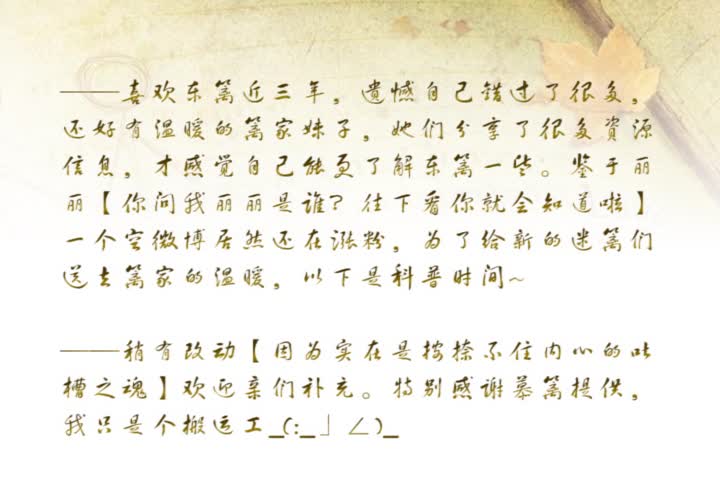 ——喜欢东篱近三年，遗憾自己错过了很多，
还好有温暖的篱家妹子，她们分享了很多資源
信息，才感觉自己能更了解东篱一些。鉴于丽
丽【你问我丽丽是谁？往下看你就会知道啦】
一个空微博居然还在涨粉，为了给新的迷篱们
送去篱家的温暖，以下是科普时间~
——稍有改动【因为实在是按捺不住内心的吐
槽之魂】欢迎亲们补充。特别感谢慕篱提供，
我只是个搬运工_(:_」∠)_